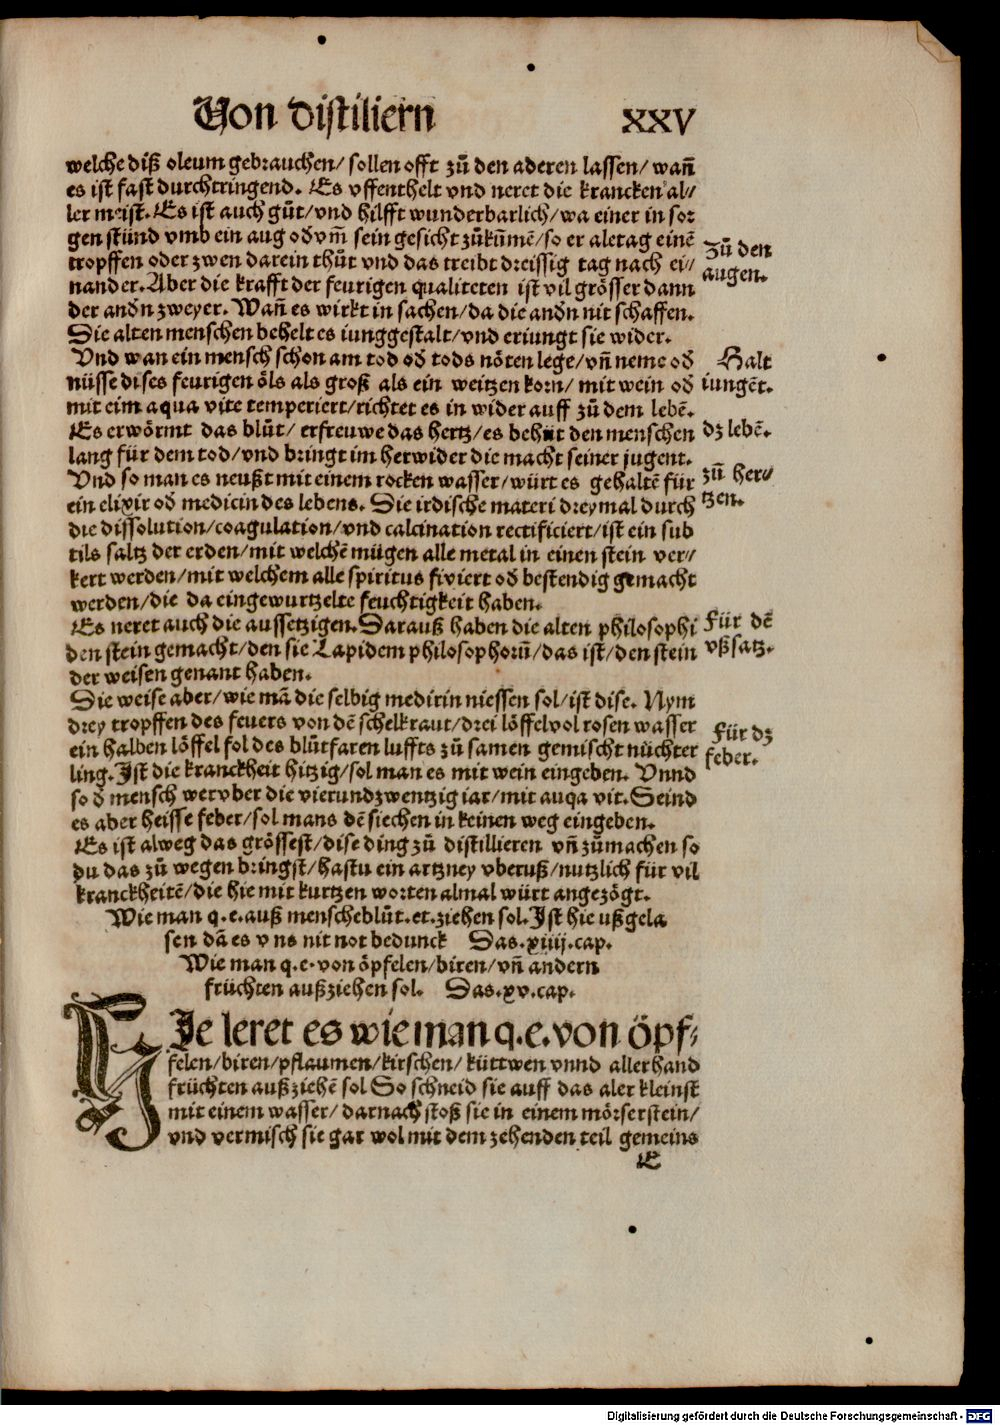 Von distiliern XXV
welche diß oleum gebrauchen/ sollen offt zů den aderen lassen/ wañ
es ist fast durchtringend. Es vffenthelt vnd neret die krancken al//
ler meist. Es ist auch gůt/vnd hilfft wunderbarlich/wa einer in sor
gen stünd vmb ein aug odvm̃ sein gesicht zůkum̃ē/so er aletag einē
Zů den
tropffen oder zwen darein thůt vnd das treibt dreissig tag nach ei//
augen.
nander. Aber die krafft der feurigen qualiteten ist vil grösser dann
der andn zweyer. Wañ es wirkt in sachen/da die andn nit schaffen.
Die alten menschen behelt es iunggestalt/vnd eriungt sie wider.
Vnd wan ein mensch schon am tod od tods nöten lege/vñ neme od
Halt
nüsse dises feurigen öls als groß als ein weitzen korn/ mit wein od
iungēt.
mit eim aqua vite temperiert/richtet es in wider auff zů dem lebē.
Es erwörmt das blůt/ erfreuwe das hertz/es behüt den menschen
dz lebē.
lang für dem tod/vnd bringt im herwider die macht seiner jugent.
Vnd so man es neußt mit einem rocken wasser/würt es gehaltē für
zů her//
ein elixir od medicin des lebens. Die irdische materi dreymal durch
tzen.
die dissolution/coagulation/vnd calcination rectificiert/ist ein sub
tils saltz der erden/mit welchē mügen alle metal in einen stein ver//
kert werden/mit welchem alle spiritus fixiert od bestendig gemacht
werden/die da eingewurtzelte feuchtigkeit haben.
Es neret auch die aussetzigen. Darauß haben die alten philosophi
Für dē
den stein gemacht/den sie Lapidem philosophorũ/das ist/den stein
vßsatz.
der weisen genant haben.
Die weise aber/wie mā die selbig medirin niessen sol/ist dise. Nym
drey tropffen des feuers von dē schelkraut/drei löffelvol rosen wasser
Für dz
ein halben löffel fol des blůtfaren luffts zů samen gemischt nüchter
feber.
ling. Ist die kranckheit hitzig/sol man es mit wein eingeben. Vnnd
so d mensch wer vber die vierundzwentzig iar/mit auqa vit. Seind
es aber heisse feber/sol mans dē siechen in keinen weg eingeben.
Es ist alweg das grössest/dise ding zů distillieren vñ zůmachen so
du das zů wegen bringst/hastu ein artzney vberuß/nutzlich für vil
kranckheitē/die hie mit kurtzen worten almal würt angezögt.
Wie man q.e. auß menscheblůt.et.ziehen sol. Ist hie ußgela
sen dā es vns nit not bedunck Das.xiiij.cap.
Wie man q.e. von öpfelen/biren/vñ andern
früchten außziehen sol. Das.xv.cap.
HIe leret es wie man q.e. von öpf//
felen/biren/pflaumen/kirschen/küttwen vnnd allerhand
früchten außziehē sol So schneid sie auff das aler kleinst
mit einem wasser/ darnach stoß sie in einem mörserstein/
vnd vermisch sie gar wol mit dem zehenden teil gemeins
E
Digitalisierung gefördert durch die Deutsche Forschungsgemeinschaft - DFG